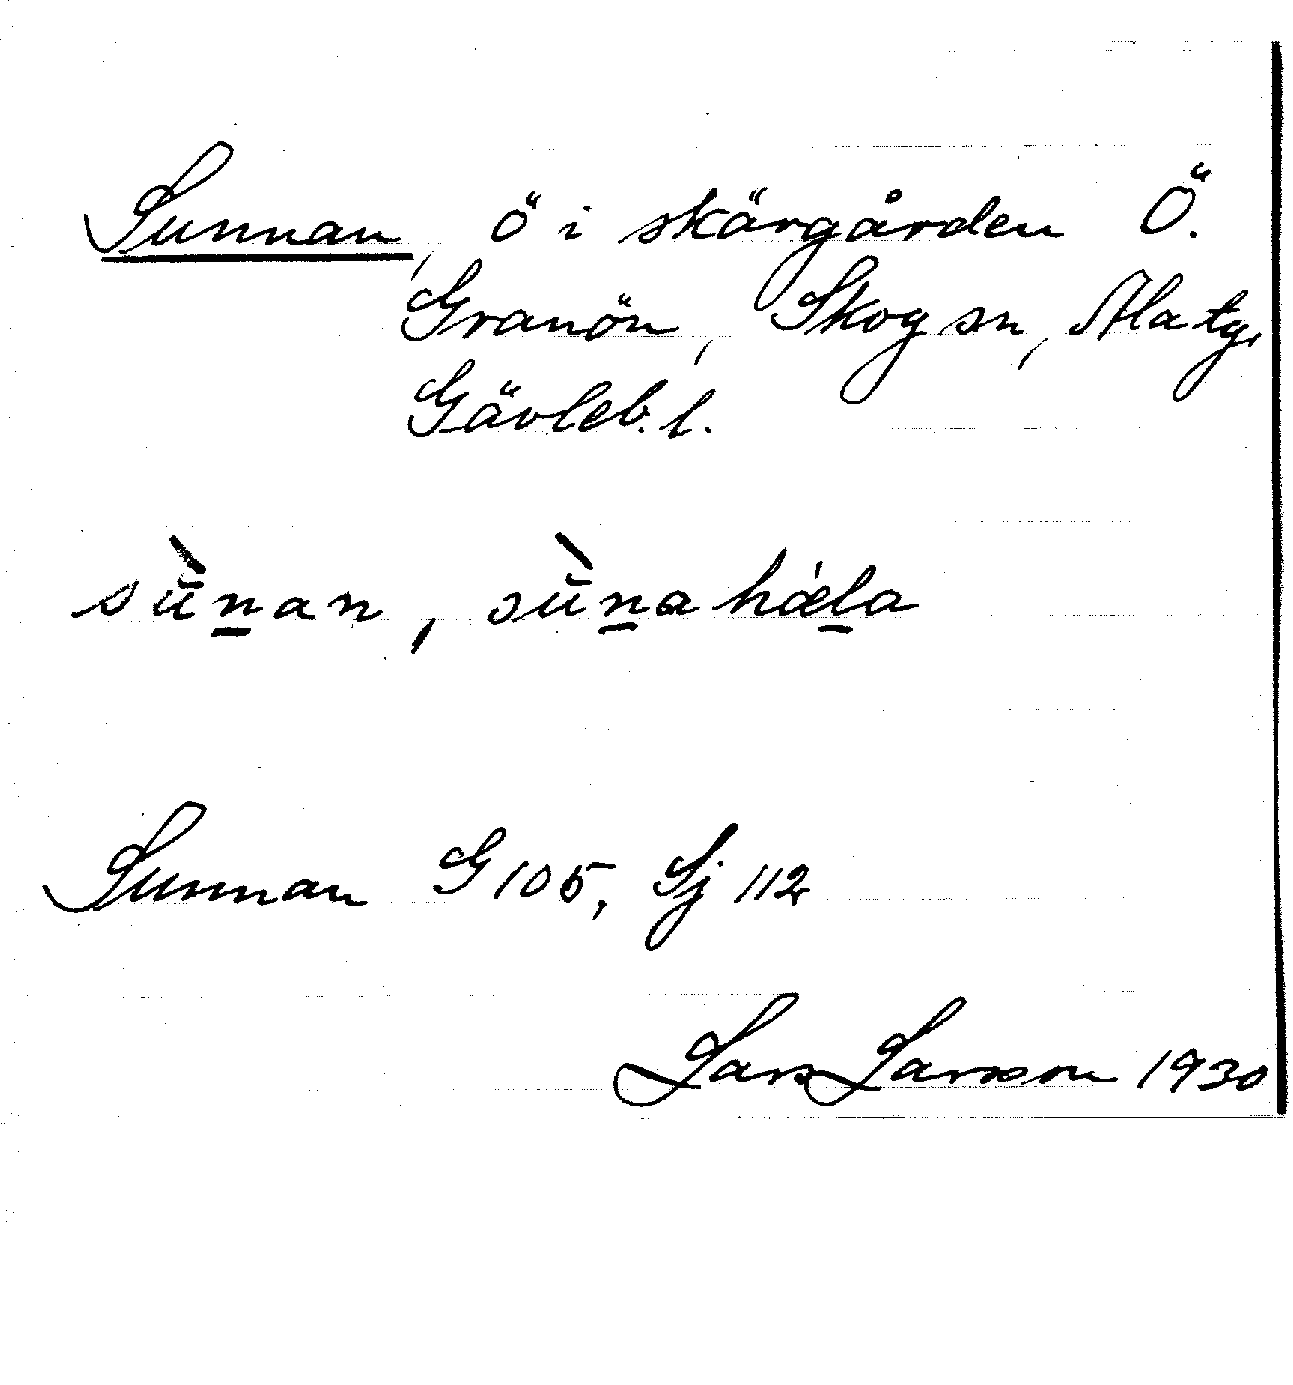 Sunnan, ö i skärgården Ö.
Granön, Skog sn, Ala tg,
Gävleb. l.
sùn̲an, sùn̲a hǽl̲a
Sunnan G 105, Sj 112
Lars Larsson 1930